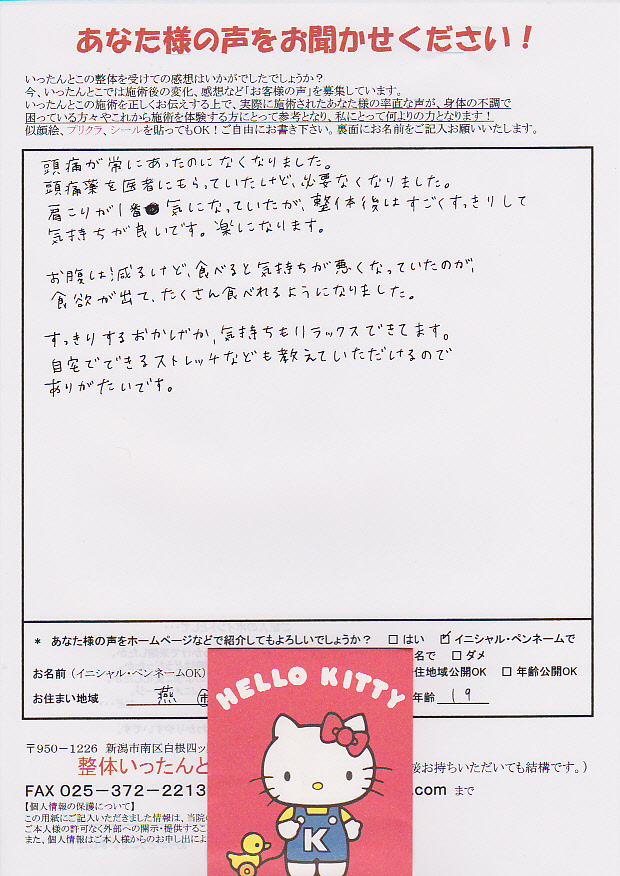 あなた様の声をお聞かせください！
いったんとこの整体を受けての感想はいかがでしたでしょうか？
今、いったんとこでは施術後の変化、感想など「お客様の声」を募集しています。
いったんとこの施術を正しくお伝えする上で、実際に施術されたあなた様の率直な声が、身体の不調で
困っている方々やこれから施術を体験する方にとって参考となり、私にとって何よりの力となります！
似顔絵、プリクラ、シールを貼ってもOK！ご自由にお書き下さい。裏面にお名前をご記入お願いいたします。
頭痛が常にあったのになくなりました。
頭痛薬を医者にもらっていたけど、必要なくなりました。
肩こりが1番 気になっていたが、整体後はすごくすっきりして
気持ちが良いです。楽になります。
お腹は減るけど、食べると気持ちが悪くなっていたのが、
食欲が出て、たくさん食べれるようになりました。
すっきりするおかげか、気持ちもリラックスできてます。
自宅でできるストレッチなども教えていただけるので
ありがたいです。
* あなた様の声をホームページなどで紹介してもよろしいでしょうか？ □ はい ☑ イニシャル・ペンネームで
名で □ ダメ
お名前（イニシャル・ペンネームOK） 住地域公開OK □ 年齢公開OK
お住まい地域 燕 市 年齢 19
HELLO KITTY
K
〒950－1226 新潟市南区白根四ッ
整体いったんと 接お持ちいただいても結構です。）
FAX 025－372－2213 .com まで
【個人情報の保護について】
この用紙にご記入いただきました情報は、当院
ご本人様の許可なく外部への開示・提供するこ
また、個人情報はご本人様からのお申し出によ